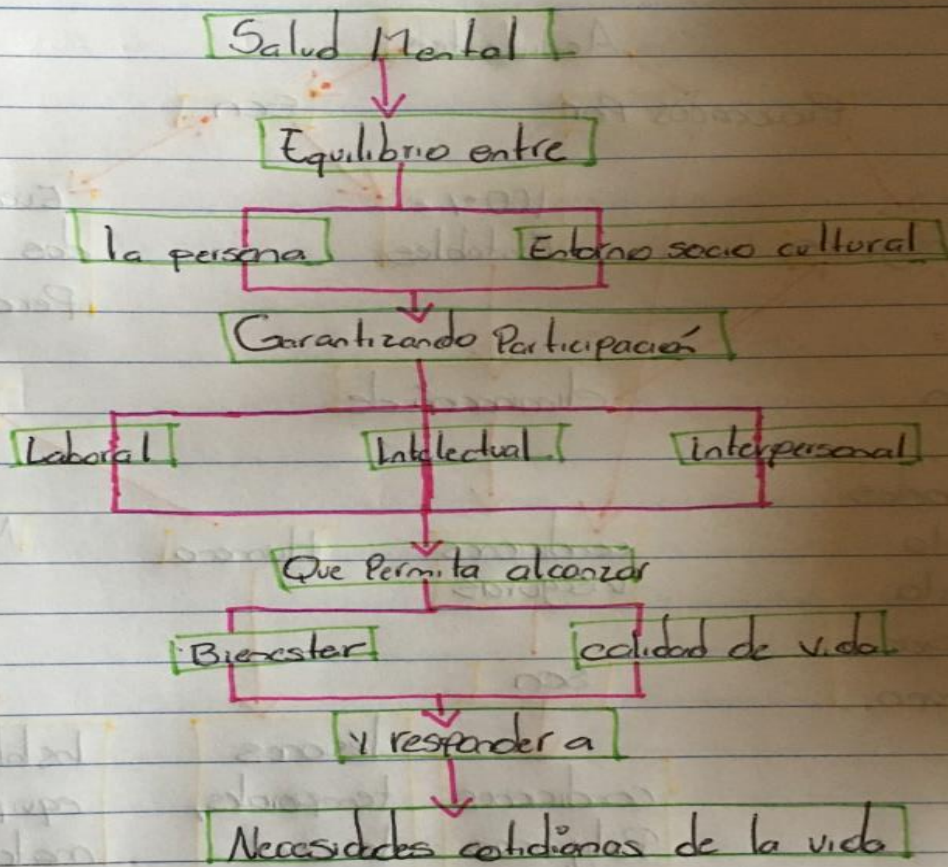 Salud Mental
Equilibrio entre
la persona
Entorno socio cultural
Garantizando Participación
Laboral
Intelectual
interpersonal
Que Permita alcanzar
Bienester
calidad de vida
y responder a
Necesidades cotidianas de la vida